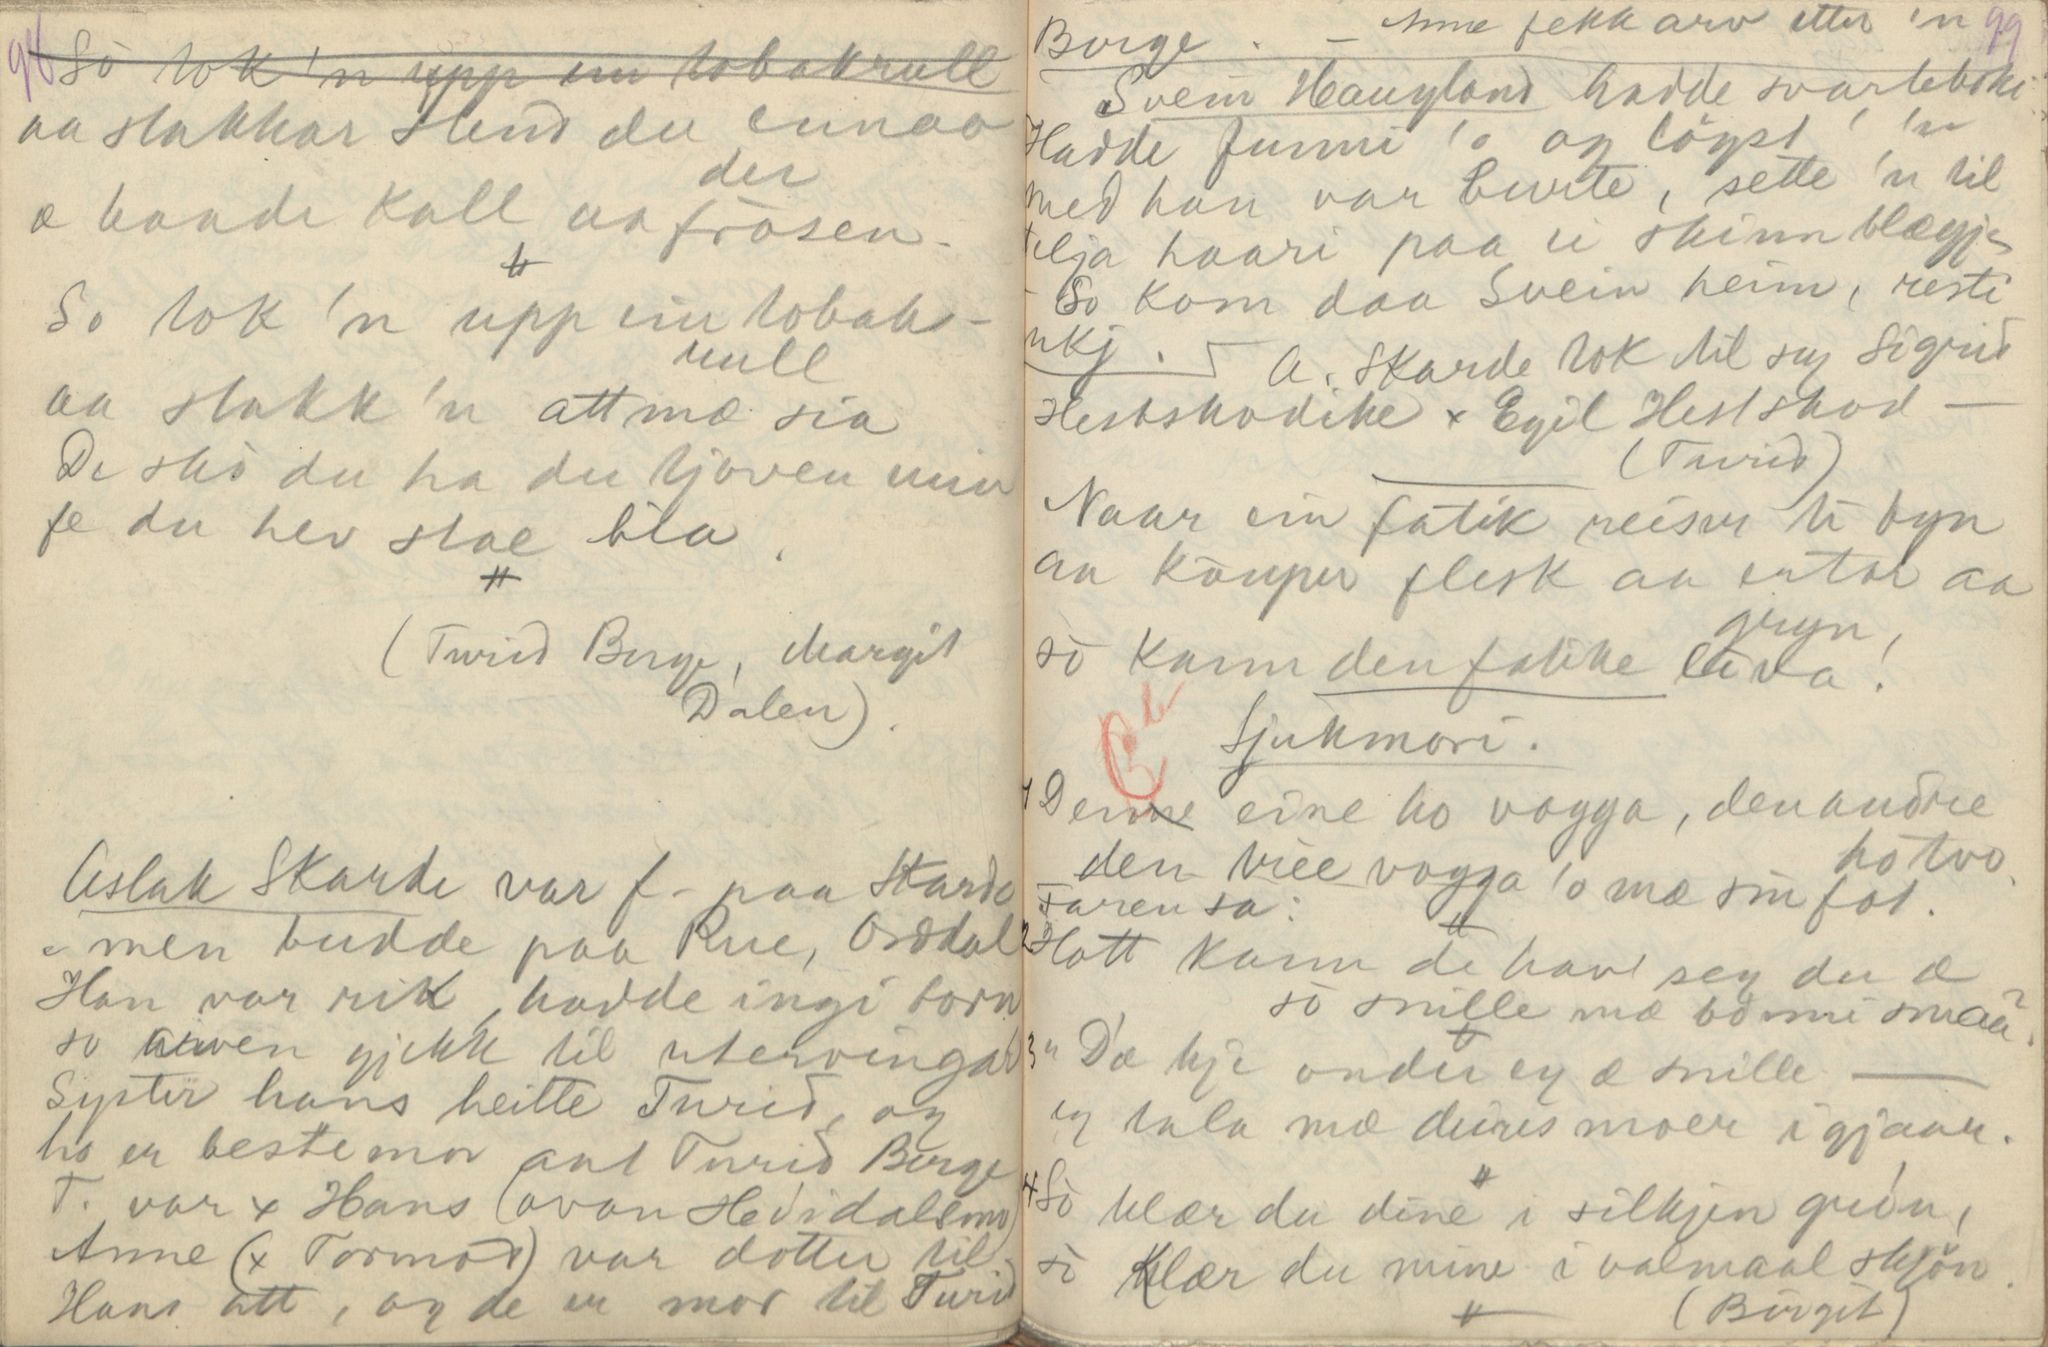 98
So tok 'n upp ein tobakrull
aa stakkar stend du einaa
der
æ baade kall aa frosen.
#
So tok 'n upp ein tobak-
rull
aa stakk 'n attmæ sia
De sko du ha du tjoven min
fe du hev stæ bla.
#
(Turid Borge, Margit
Dalen).
Aslak Skarde var f. paa Skarde
men budde paa Rue, Orddal
Han var rik, hadde ingi born
so arven gjekk til utervingar
Syster hans heitte Turid, og
ho er bestemor aat Turid Borge
T. var x Hans (ovan Heddidalsmo)
Anne (x Tormod) var dotter til
Hans att, og de er mor til Turid
Borge. - Anne fekk arv etter 'n 99
Svein Haugland hadde svarteboki
Hadde funni 'o og löyst 'n
med han var burte, sette 'n til
telja haari paa ei skinnblægje
So kom daa Svein heim, resti
ukj. A. Skarde tok til seg Sigrid
Hestskodike x Egil Hestskod —
(Turid)
Naar ein fatik reiser ti byn
aa kauper flesk aa ertar aa
gryn,
so kann den fatike liva!
Sjukmori.
1 Den eine ho vogga, den andre
ho tvo.
den tree vogga 'o mæ sin fot.
Faren sa: #
2 Hott kann de have seg du æ
so snille mæ bonni smaa?
3 "Dæ kje onder eg æ snille —
eg tala mæ deires moer i gjaar.
#
4 So klær du dine i silkjen grön,
so klær du mine i valmaal skjön.
# (Birgit)